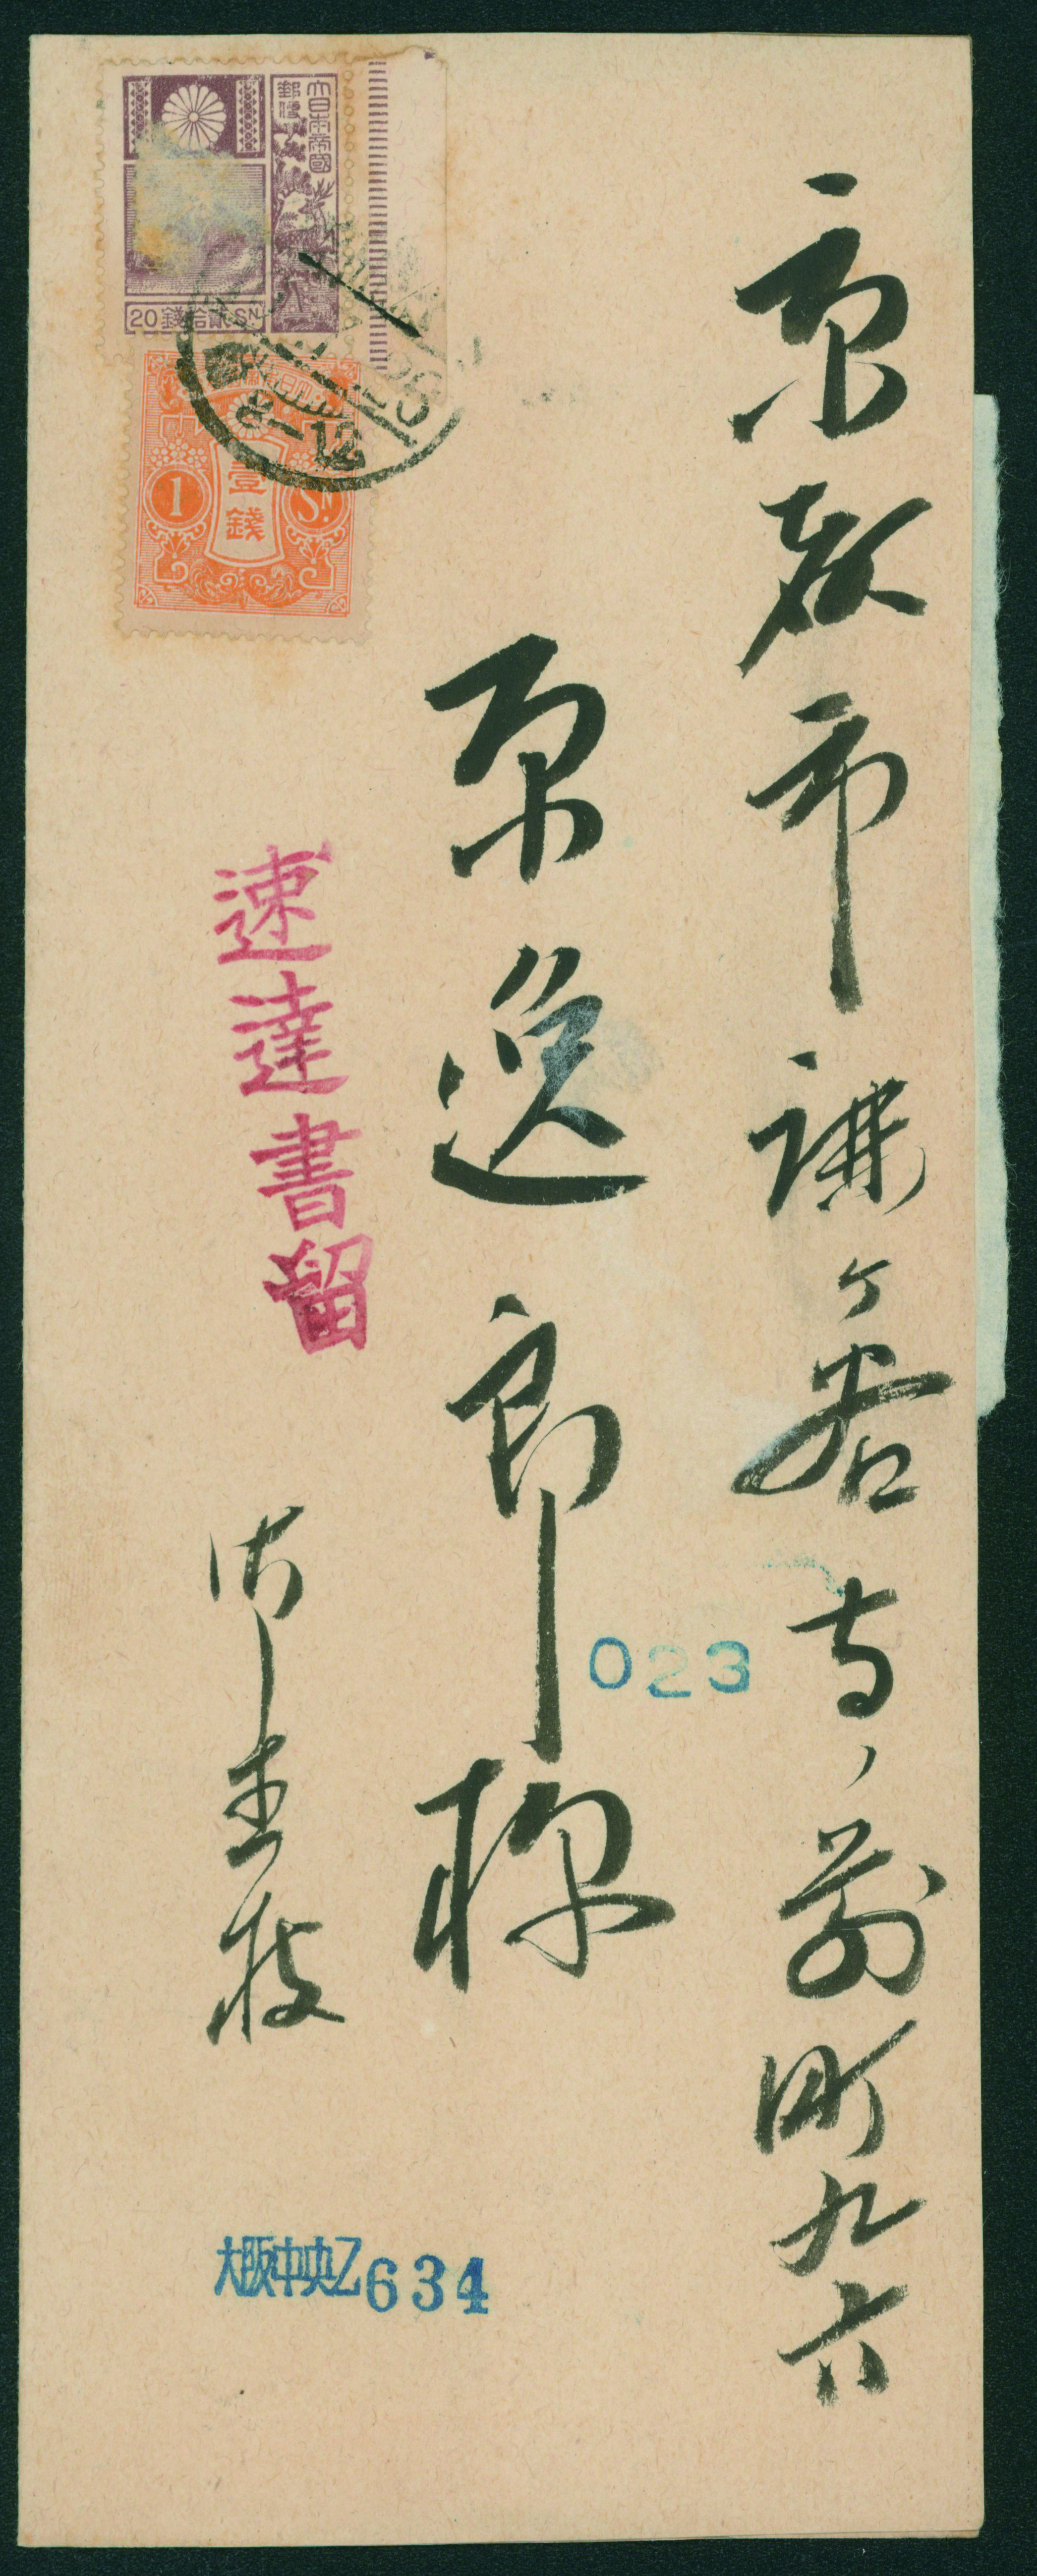 京都市鹿ヶ谷寺ノ前町九六
原逸郎様
御直披
速達書留
大日本帝國
郵便
20 錢拾貳 SN
1 壹錢 Sn
8-12
023
大阪中央乙634